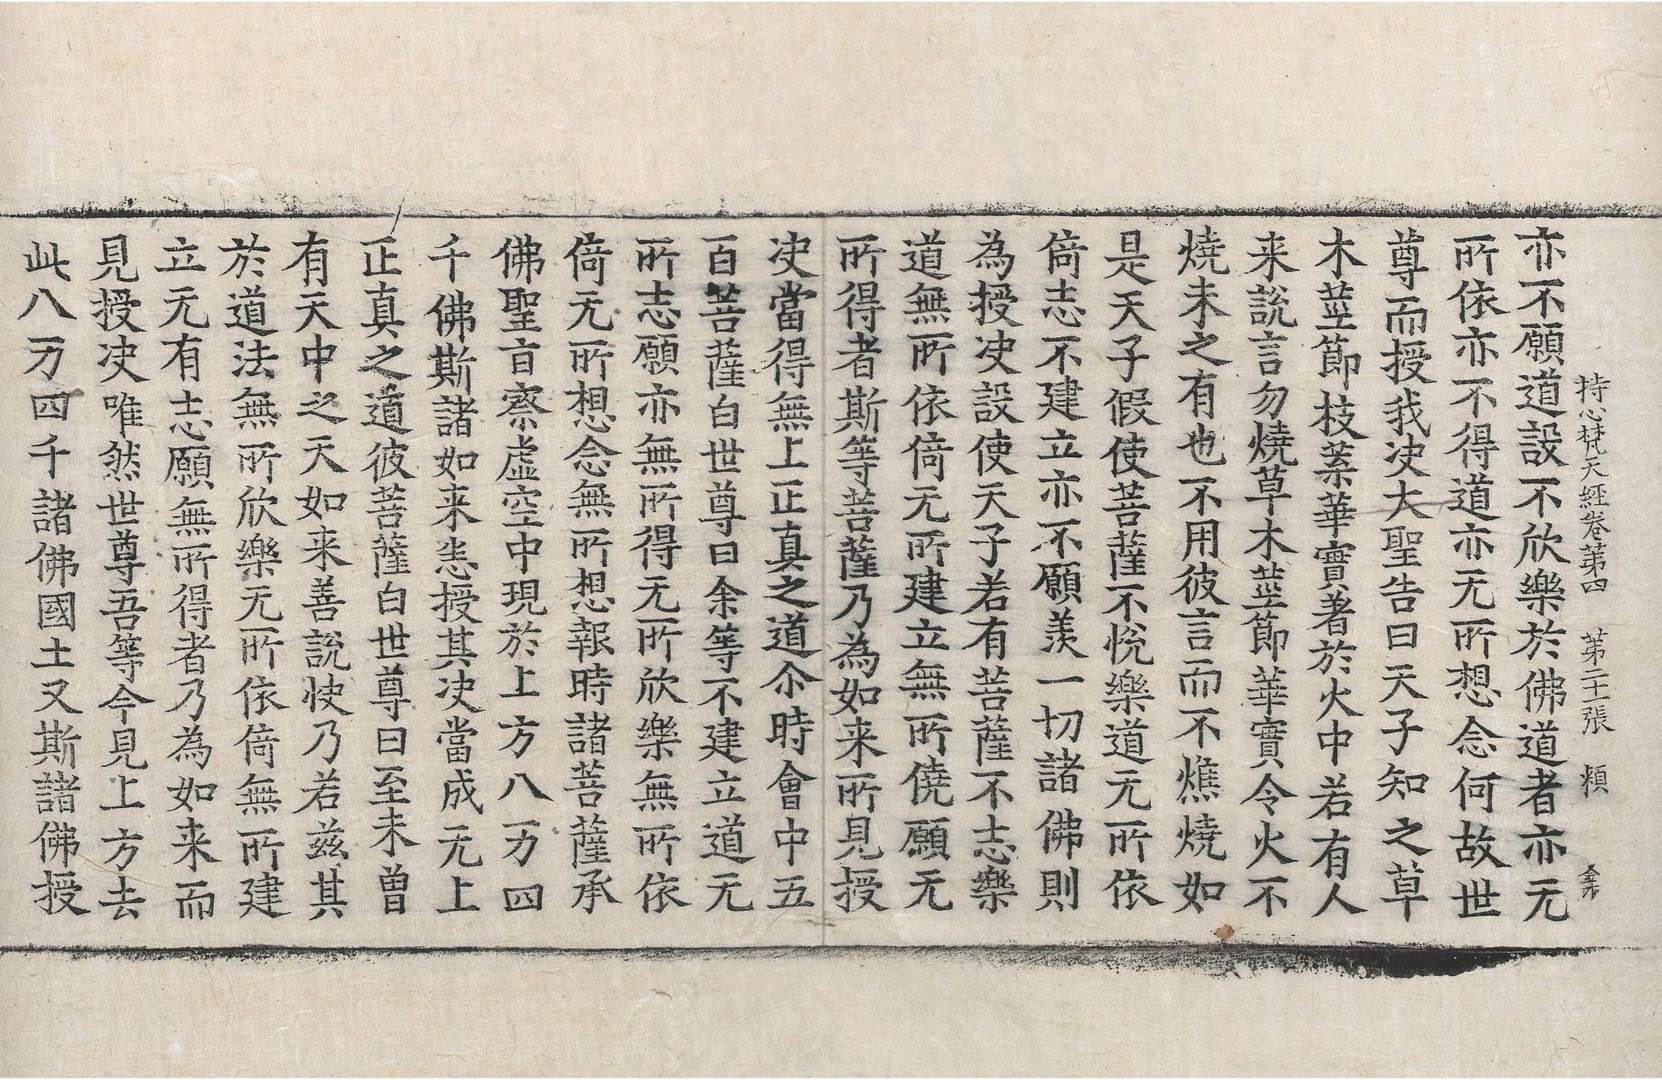 持心梵天經卷第四 第二十二張 頬
亦不願道設不欣樂於佛道者亦无
所依亦不得道亦无所想念何故世
尊而授我决大聖告曰天子知之草
木莖節枝葉華實著於火中若有人
来說言勿燒草木莖節華實令火不
燒未之有也不用彼言而不燋燒如
是天子假使菩薩不悅樂道无所依
倚志不建立亦不願羨一切諸佛則
為授决設使天子若有菩薩不志樂
道無所依倚无所建立無所僥願无
所得者斯等菩薩乃為如来所見授
决當得無上正真之道尒時會中五
百菩薩白世尊曰余等不建立道无
所志願亦無所得无所欣樂無所依
倚无所想念無所想報時諸菩薩承
佛聖旨察虛空中現於上方八万四
千佛斯諸如来恙授其决當成无上
正真之道彼菩薩白世尊曰至未曾
有天中之天如来善說快乃若兹其
於道法無所欣樂无所依倚無所建
立无有志願無所得者乃為如来而
見授决唯然世尊吾等今見上方去
此八万四千諸佛國土又斯諸佛授